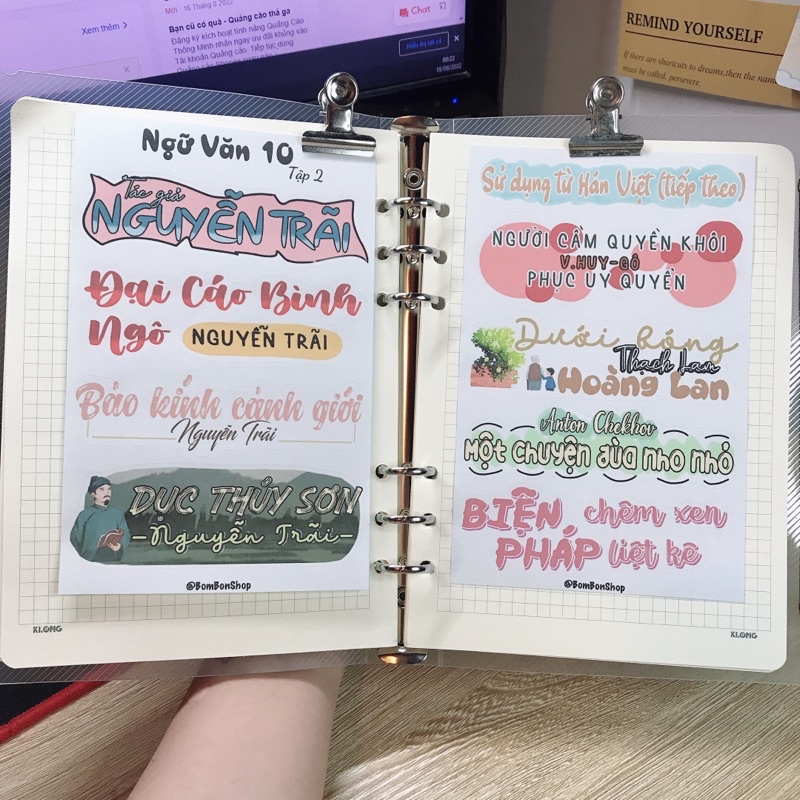 Xem thêm >
Mới. 16 Tháng 8 2022
Bạn cũ có quà - Quảng cáo thả ga
Đăng ký kích hoạt tính năng Quảng Cáo
Thông Minh nhận ngay ưu đãi khủng vào
Tài khoản Quảng cáo. Tiếp tục dùng
Chat
Hiển thị tất cả
00:22
19/08/2022
REMIND YOURSELF
If there are shortcuts to dreams,then the name
must be called, persevere.
Ngữ Văn 10
Tập 2
Tác giả
NGUYỄN TRÃI
Đại Cáo Bình
Ngô NGUYỄN TRÃI
Bảo kính cảnh giới
Nguyễn Trãi
DỤC THÚY SƠN
-Nguyễn Trãi-
@BomBonShop
KLONG
Sử dụng từ Hán Việt (tiếp theo)
NGƯỜI CẦM QUYỀN KHÔI
V.HUY-GÔ
PHỤC UY QUYỀN
Dưới bóng
Thạch Lam
Hoàng Lan
Anton Chekhov
Một chuyện đùa nho nhỏ
BIỆN chêm xen
PHÁP liệt kê
@BomBonShop
KLONG